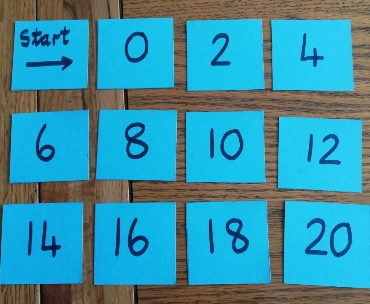 Start → 0 2 4
6 8 10 12
14 16 18 20